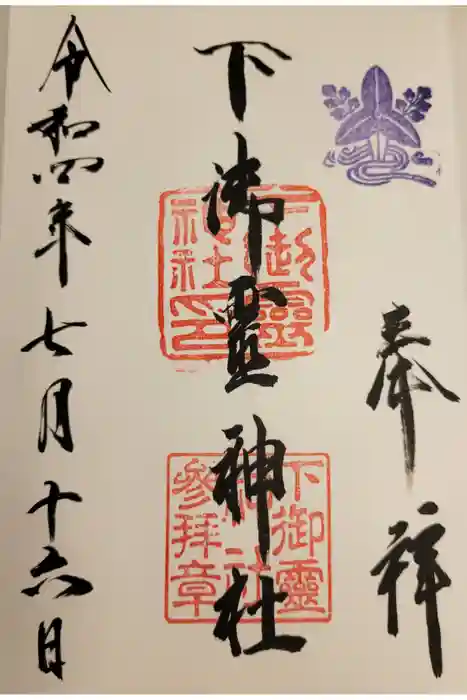 奉祥
下御靈神社
下御靈神社印
下御靈神社参拝章
令和四年七月十六日